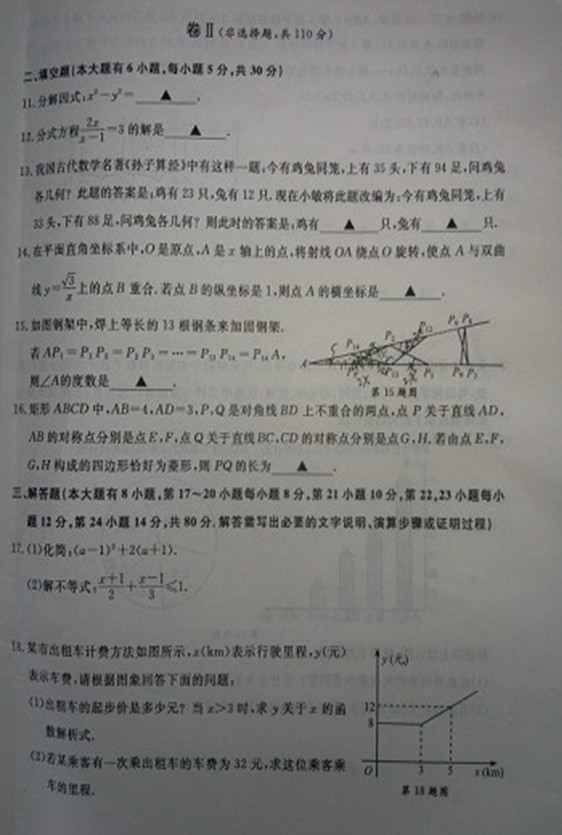 卷Ⅱ(非选择题,共110分)
二、填空题(本大题有6小题,每小题5分,共30分)
11.分解因式:x²-y²=▲.
12.分式方程2x/(x-1)=3的解是▲.
13.我国古代数学名著《孙子算经》中有这样一题,今有鸡兔同笼,上有35头,下有94足,问鸡兔
各几何?此题的答案是:鸡有23只,兔有12只.现在小敏将此题改编为:今有鸡兔同笼,上有
33头,下有88足,问鸡兔各几何?则此时的答案是:鸡有▲只,兔有▲只.
14.在平面直角坐标系中,O是原点,A是x轴上的点,将射线OA绕点O旋转,使点A与双曲
线y=√3/x上的点B重合.若点B的纵坐标是1,则点A的横坐标是▲.
15.如图钢架中,焊上等长的13根钢条来加固钢架.
若AP₁=P₁P₂=P₂P₃=…=P₁₃P₁₄=P₁₄A,
则∠A的度数是▲.
A P₁₄ P₂ P₁₂ P₆ P₈
P₁₃ P₃ P₉ P₇
第15题图
16.矩形ABCD中,AB=4,AD=3,P,Q是对角线BD上不重合的两点,点P关于直线AD,
AB的对称点分别是点E,F,点Q关于直线BC,CD的对称点分别是点G,H.若由点E,F,
G,H构成的四边形恰好为菱形,则PQ的长为▲.
三、解答题(本大题有8小题,第17~20小题每小题8分,第21小题10分,第22,23小题每小
题12分,第24小题14分,共80分.解答需写出必要的文字说明、演算步骤或证明过程)
17.(1)化简:(a-1)²+2(a+1).
(2)解不等式:(x+1)/2+(x-1)/3≤1.
18.某市出租车计费方法如图所示,x(km)表示行驶里程,y(元)
表示车费,请根据图象回答下面的问题:
(1)出租车的起步价是多少元?当x>3时,求y关于x的函
数解析式.
(2)若某乘客有一次乘出租车的车费为32元,求这位乘客乘
车的里程.
y(元)
12
8
O 3 5 x(km)
第18题图